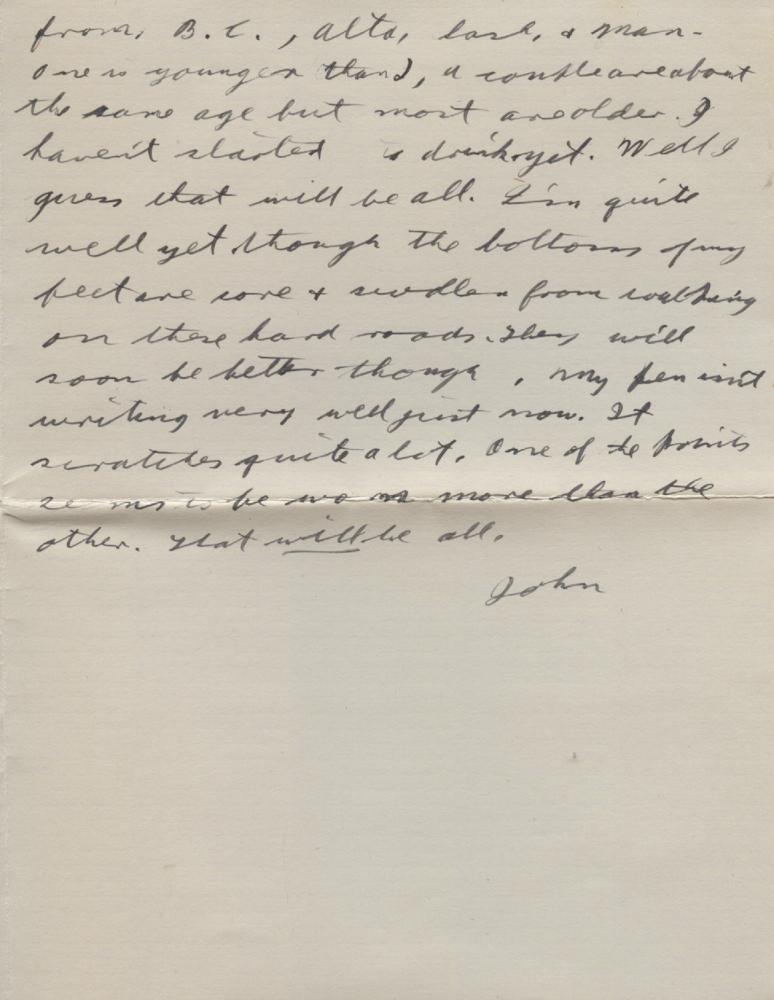 from, B.C., Alta, Sask, & Man-
One is younger than I, a couple are about
the same age but most are older. I
haven't started to drink yet. Well I
guess that will be all. I'm quite
well yet, though the bottoms of my
feet are sore & swollen from walking
on these hard roads. They will
soon be better though, My pen isn't
writing very well just now. It
scratches quite a lot. One of the points
seems to be worn more than the
other. That will be all.
John